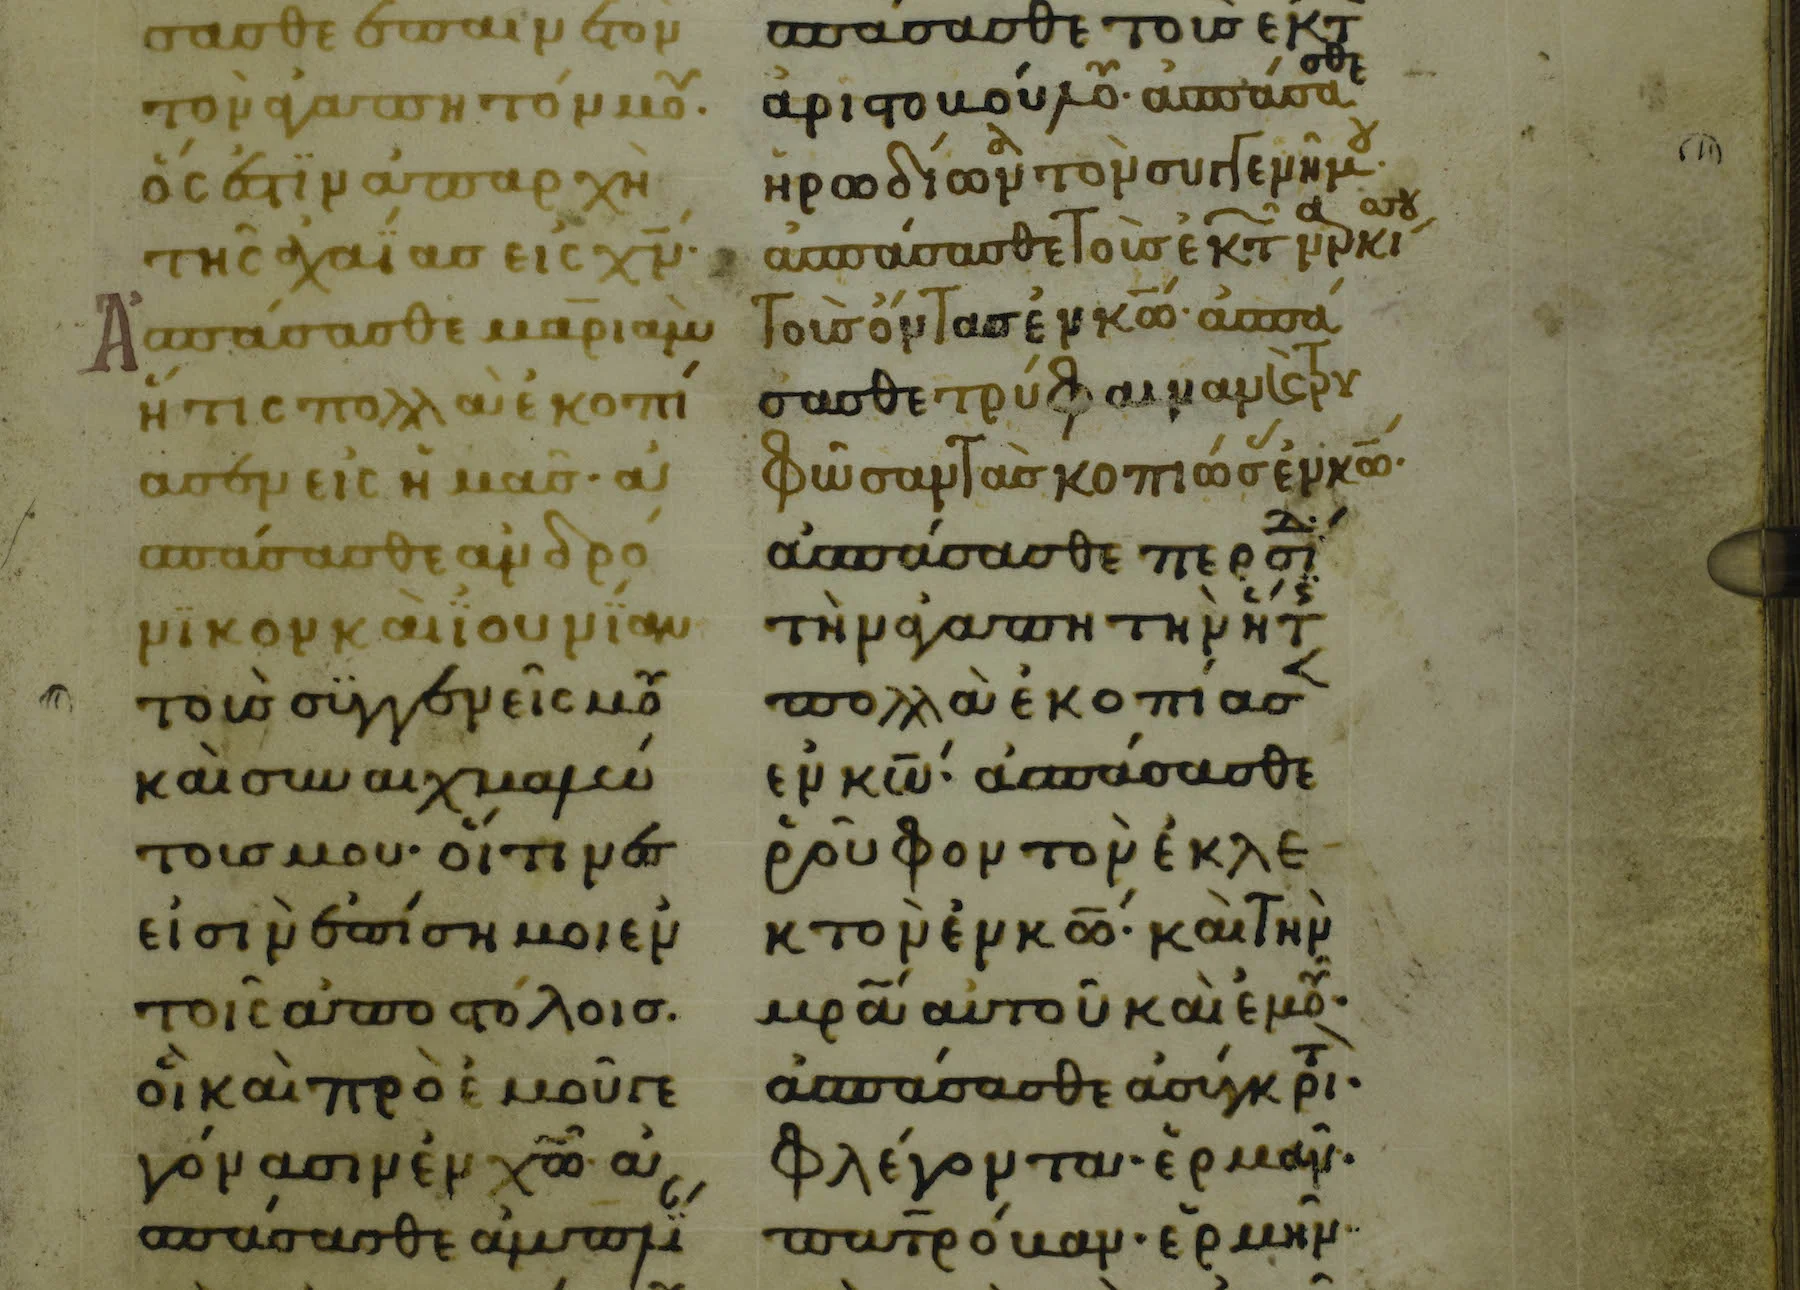 σασθε επαινετον
τον αγαπητόν μου.
ὅς ἐστιν ἀπαρχὴ
τῆς ἀχαΐας εἰς χν̄·
Ἀσπάσασθε μαριαμ
ἥτις πολλὰ ἐκοπί
ασεν εἰς ἡμᾶς· ἀ
σπάσασθε ανδρό
νϊκον καὶ ϊουνίαν
τοὺς συγγενεῖς μου
καὶ συναιχμαλώ
τους μου· οἵτινες
εἰσὶν ἐπίσημοι ἐν
τοῖς ἀποστόλοις.
οἳ καὶ πρὸ ἐμοῦ γε
γόνασιν ἐν χω̄· ἀ
σπάσασθε ἀμπλϊ
ασπάσασθε τοὺς ἐκ τ
ἀριστοβούλου· ἀσπάσασθε
ἡρωδίωνα τὸν συγγενῆ μου·
ἀσπάσασθε τοὺς ἐκ τῶν ναρκίσου
τοὺς ὄντας ἐν κω̄· ἀσπά
σασθε τρύφαιναν κς τρυ
φῶσαν τὰς κοπιώσας ἐν κω̄·
ἀσπάσασθε περσίδα
τὴν ἀγαπητὴν ἥτις
πολλὰ ἐκοπίασεν
ἐν κω̄· ἀσπάσασθε
ῥοῦφον τὸν ἐκλε
κτὸν ἐν κω̄· καὶ τὴν
μρᾱ αὐτοῦ καὶ ἐμοῦ·
ἀσπάσασθε ἀσύγκριτ·
φλέγοντα· ἑρμᾶν·
πατρόβαν· ἑρμῆν·